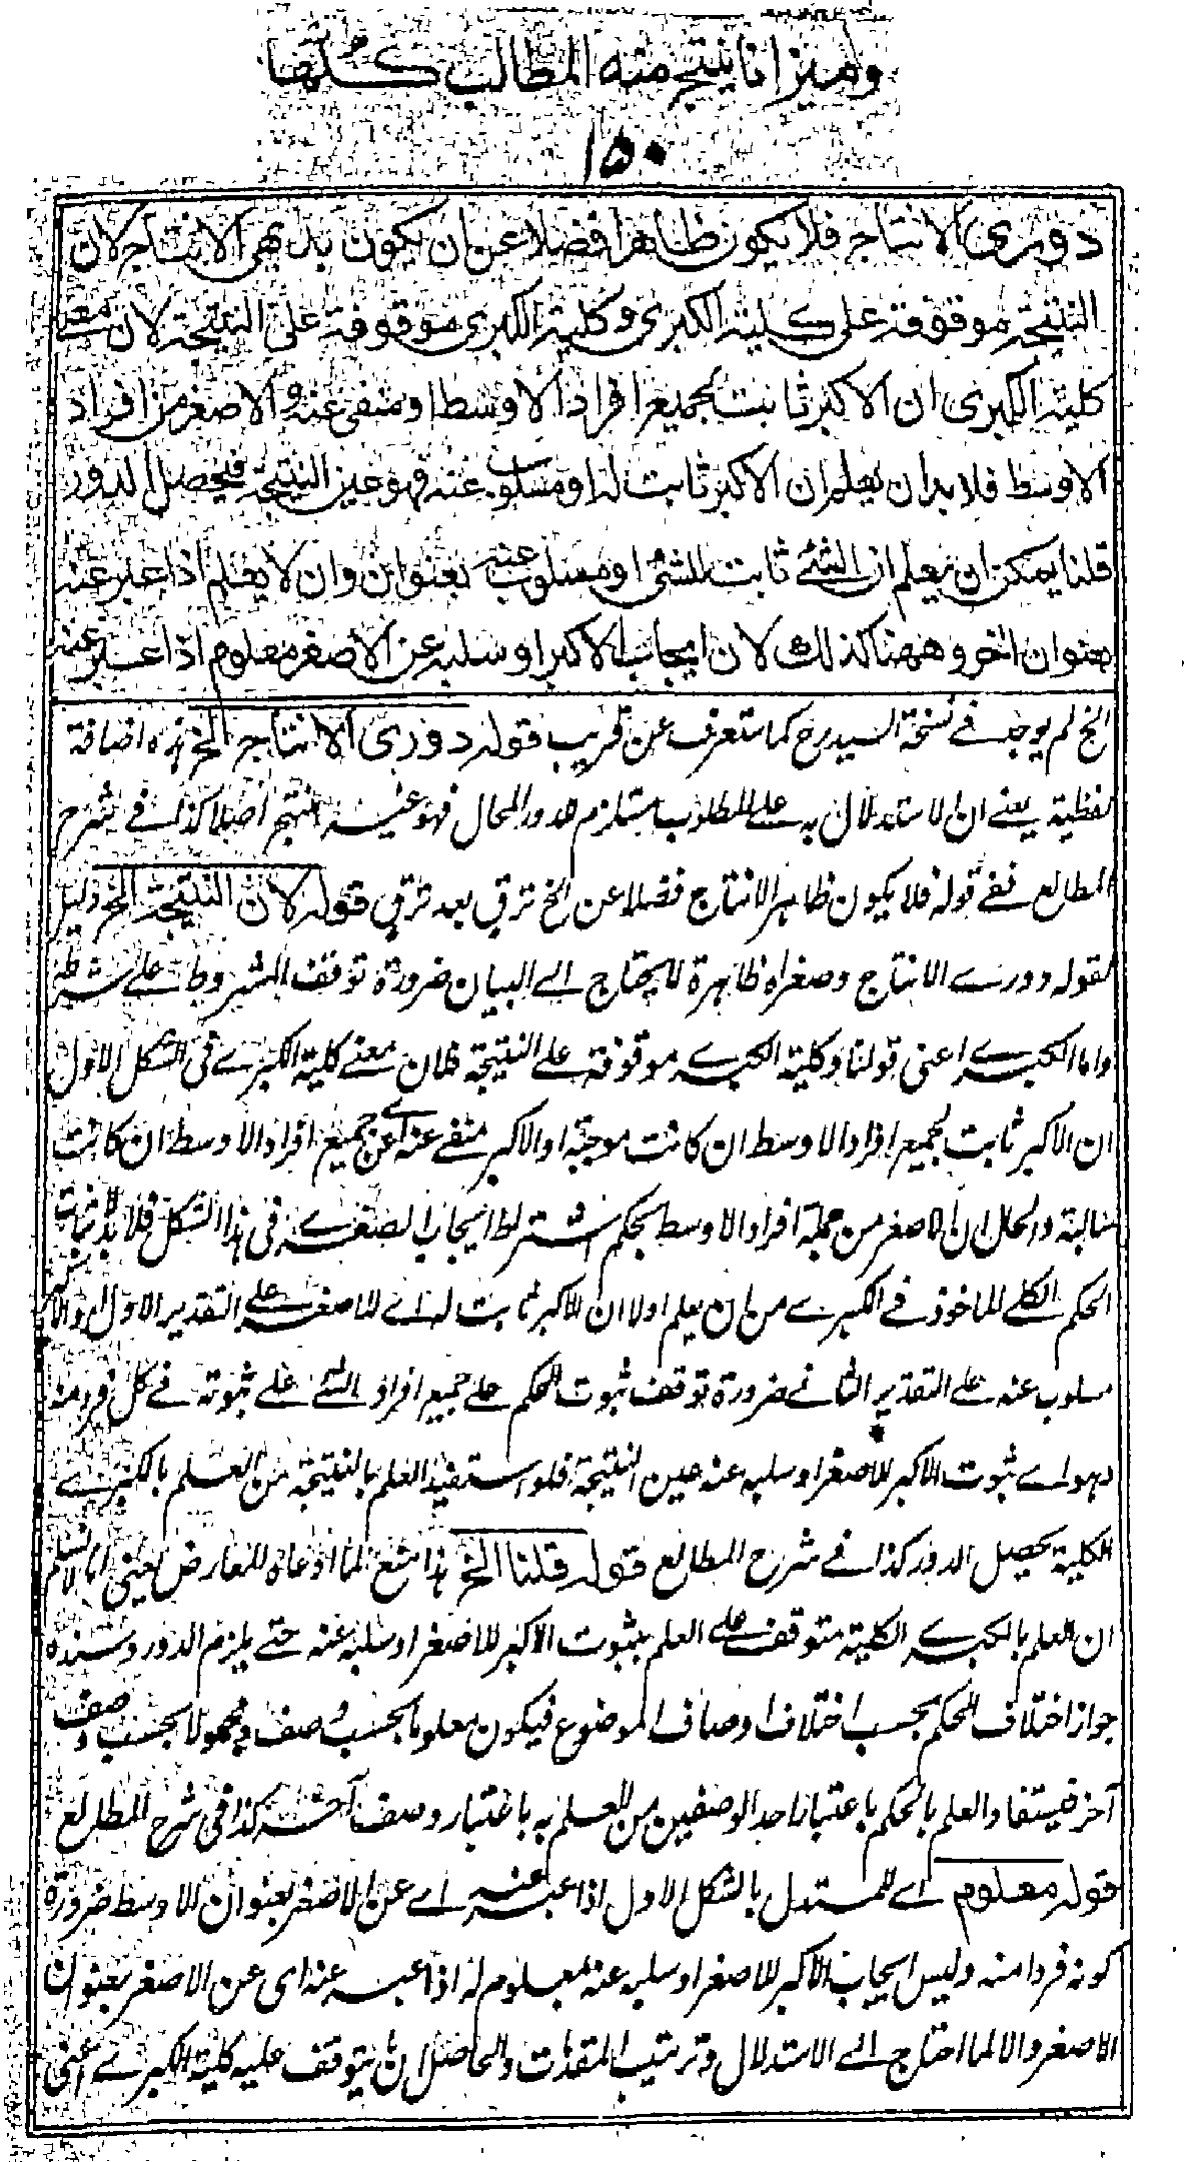 وميزانا ينتج منه المطالب كلها
١٥٠
دوري الانتاج فلا يكون ظاهرا فضلا عن ان يكون بديهي الانتاج لان
النتيجة موقوفة على كلية الكبرى وكلية الكبرى موقوفة على النتيجة لان معنى
كلية الكبرى ان الاكبر ثابت لجميع افراد الاوسط او منفي عنه والاصغر من افراد
الاوسط فلا بد ان يعلم ان الاكبر ثابت له او مسلوب عنه فهو عين النتيجة فيحصل الدور
قلنا يمكن ان يعلم ان الشئ ثابت للشئ او مسلوب عنه بعنوان وان لا يعلم اذا عبر عنه
بعنوان اخر وههنا كذلك لان ايجاب الاكبر او سلبه عن الاصغر معلوم اذا عبر عنه
الخ لم يوجد في نسخة السيد رح كما ستعرف عن قريب قوله دوري الانتاج الخ هذه اضافة
لفظية يعني ان الاستدلال به على المطلوب يستلزم هدور المحال فهو غير منتج اصلا كذا في شرح
المطالع ففي قوله فلا يكون ظاهر الانتاج فضلا عن الخ ترق بعد ترق قوله لان النتيجة الخ دليل
لقوله دوري الانتاج وصغراه ظاهرة لا يحتاج الى البيان ضرورة توقف المشروط على شرطه
واما الكبرى اعني قولنا وكلية الكبرى موقوفة على النتيجة فلان معنى كلية الكبرى في الشكل الاول
ان الاكبر ثابت لجميع افراد الاوسط ان كانت موجبة او الاكبر منفي عنه اي عن جميع افراد الاوسط ان كانت
سالبة والحال ان الاصغر من جملة افراد الاوسط بحكم اشتراط ايجاب الصغرى في هذا الشكل فلا بد لاثبات
الحكم الكلي الماخوذ في الكبرى من ان يعلم اولا ان الاكبر ثابت له اي للاصغر على التقدير الاول او الاكبر
مسلوب عنه على التقدير الثاني ضرورة توقف ثبوت الحكم على جميع افراد الشئ على ثبوته في كل فرد منه
وهو اي ثبوت الاكبر للاصغر او سلبه عنه عين النتيجة فلو استفيد العلم بالنتيجة من العلم بالكبرى
الكلية يحصل الدور كذا في شرح المطالع قوله قلنا الخ هذا منع لما ادعاه المعارض اعني انا لا نسلم
ان العلم بالكبرى الكلية متوقف على العلم بثبوت الاكبر للاصغر او سلبه عنه حتى يلزم الدور وسنده
جواز اختلاف الحكم بحسب اختلاف اوصاف الموضوع فيكون معلوما بحسب وصف ومجهولا بحسب وصف
آخر فيستفاد العلم بالحكم باعتبار احد الوصفين من العلم به باعتبار وصف آخر كذا في شرح المطالع
قوله معلوم اي للمستدل بالشكل الاول اذا عبر عنه اي عن الاصغر بعنوان الاوسط ضرورة
كونه فردا منه وليس ايجاب الاكبر للاصغر او سلبه عنه معلوم له اذا عبر عنه اي عن الاصغر بعنوان
الاصغر والا لما احتاج الى الاستدلال وترتيب المقدمات والحاصل ان ما يتوقف عليه كلية الكبرى اعني